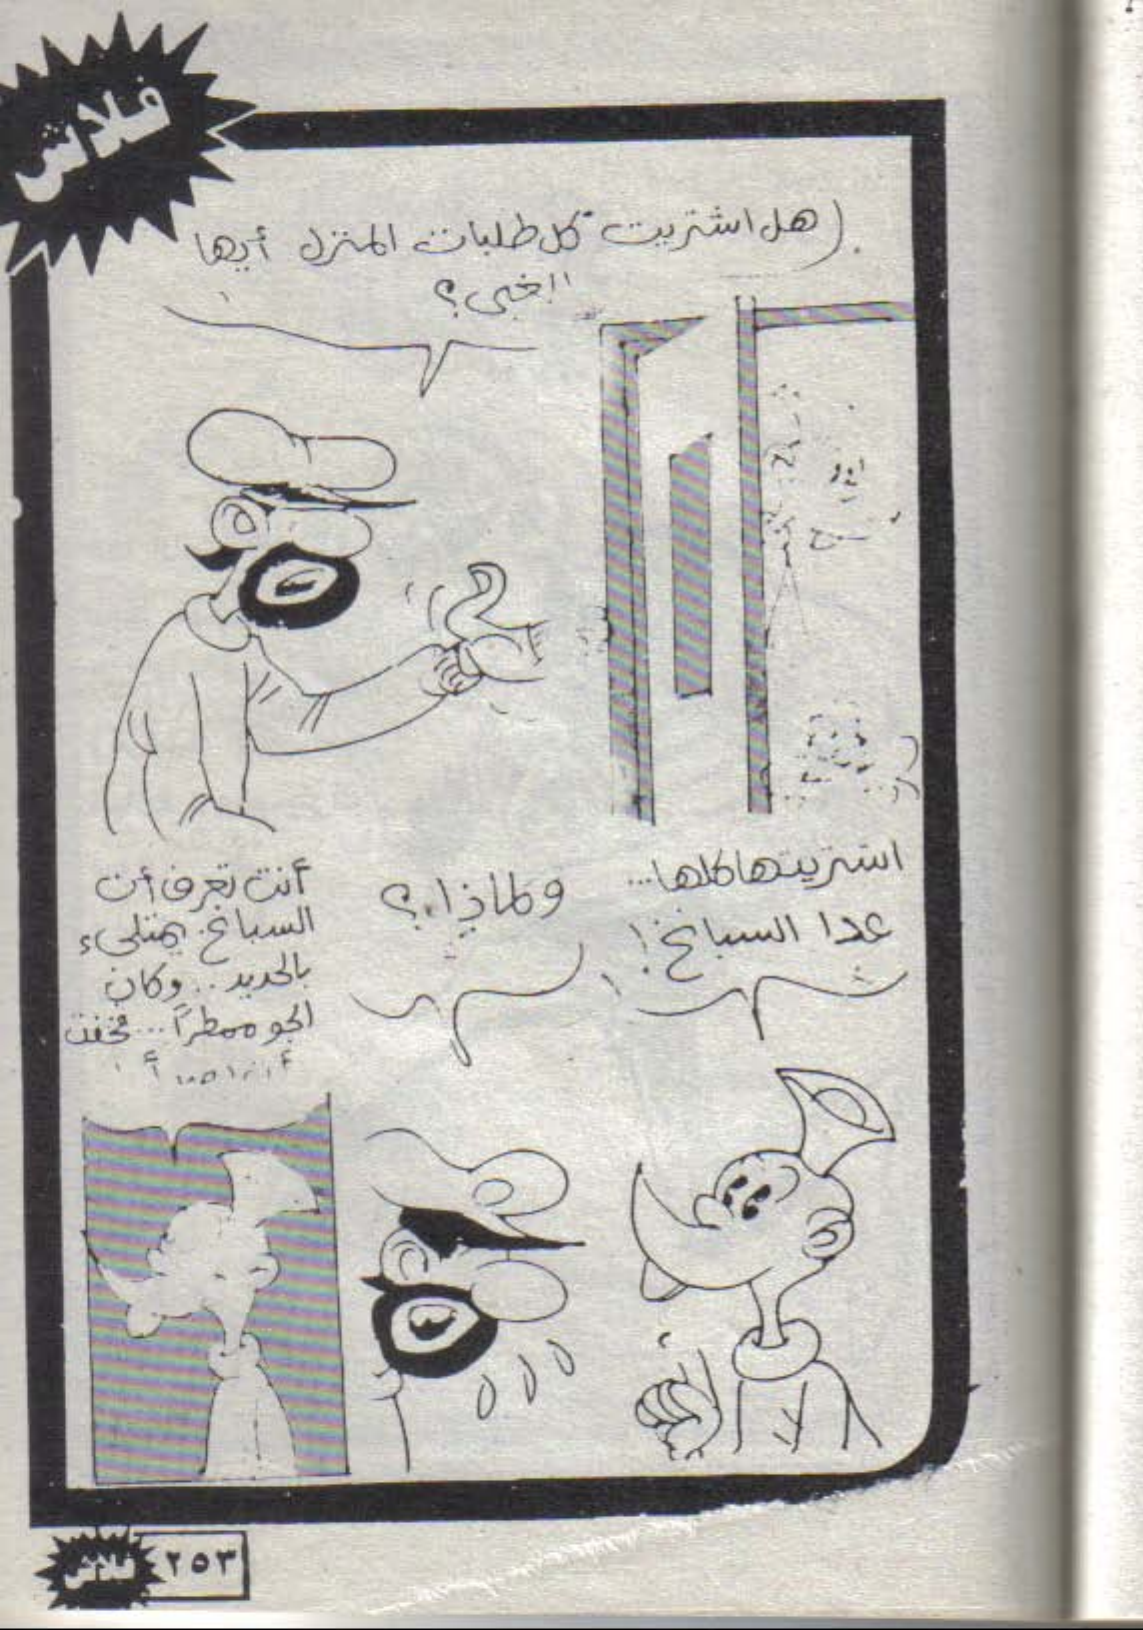 فلاش
هل اشتريت كل طلبات المنزل أيها
الغبى؟
اشتريتها كلها...
عدا السبانخ!
ولماذا؟
أنت تعرف أن
السبانخ يمتلىء
بالحديد.. وكان
الجو ممطراً... فخفت
فلاش ٢٥٣